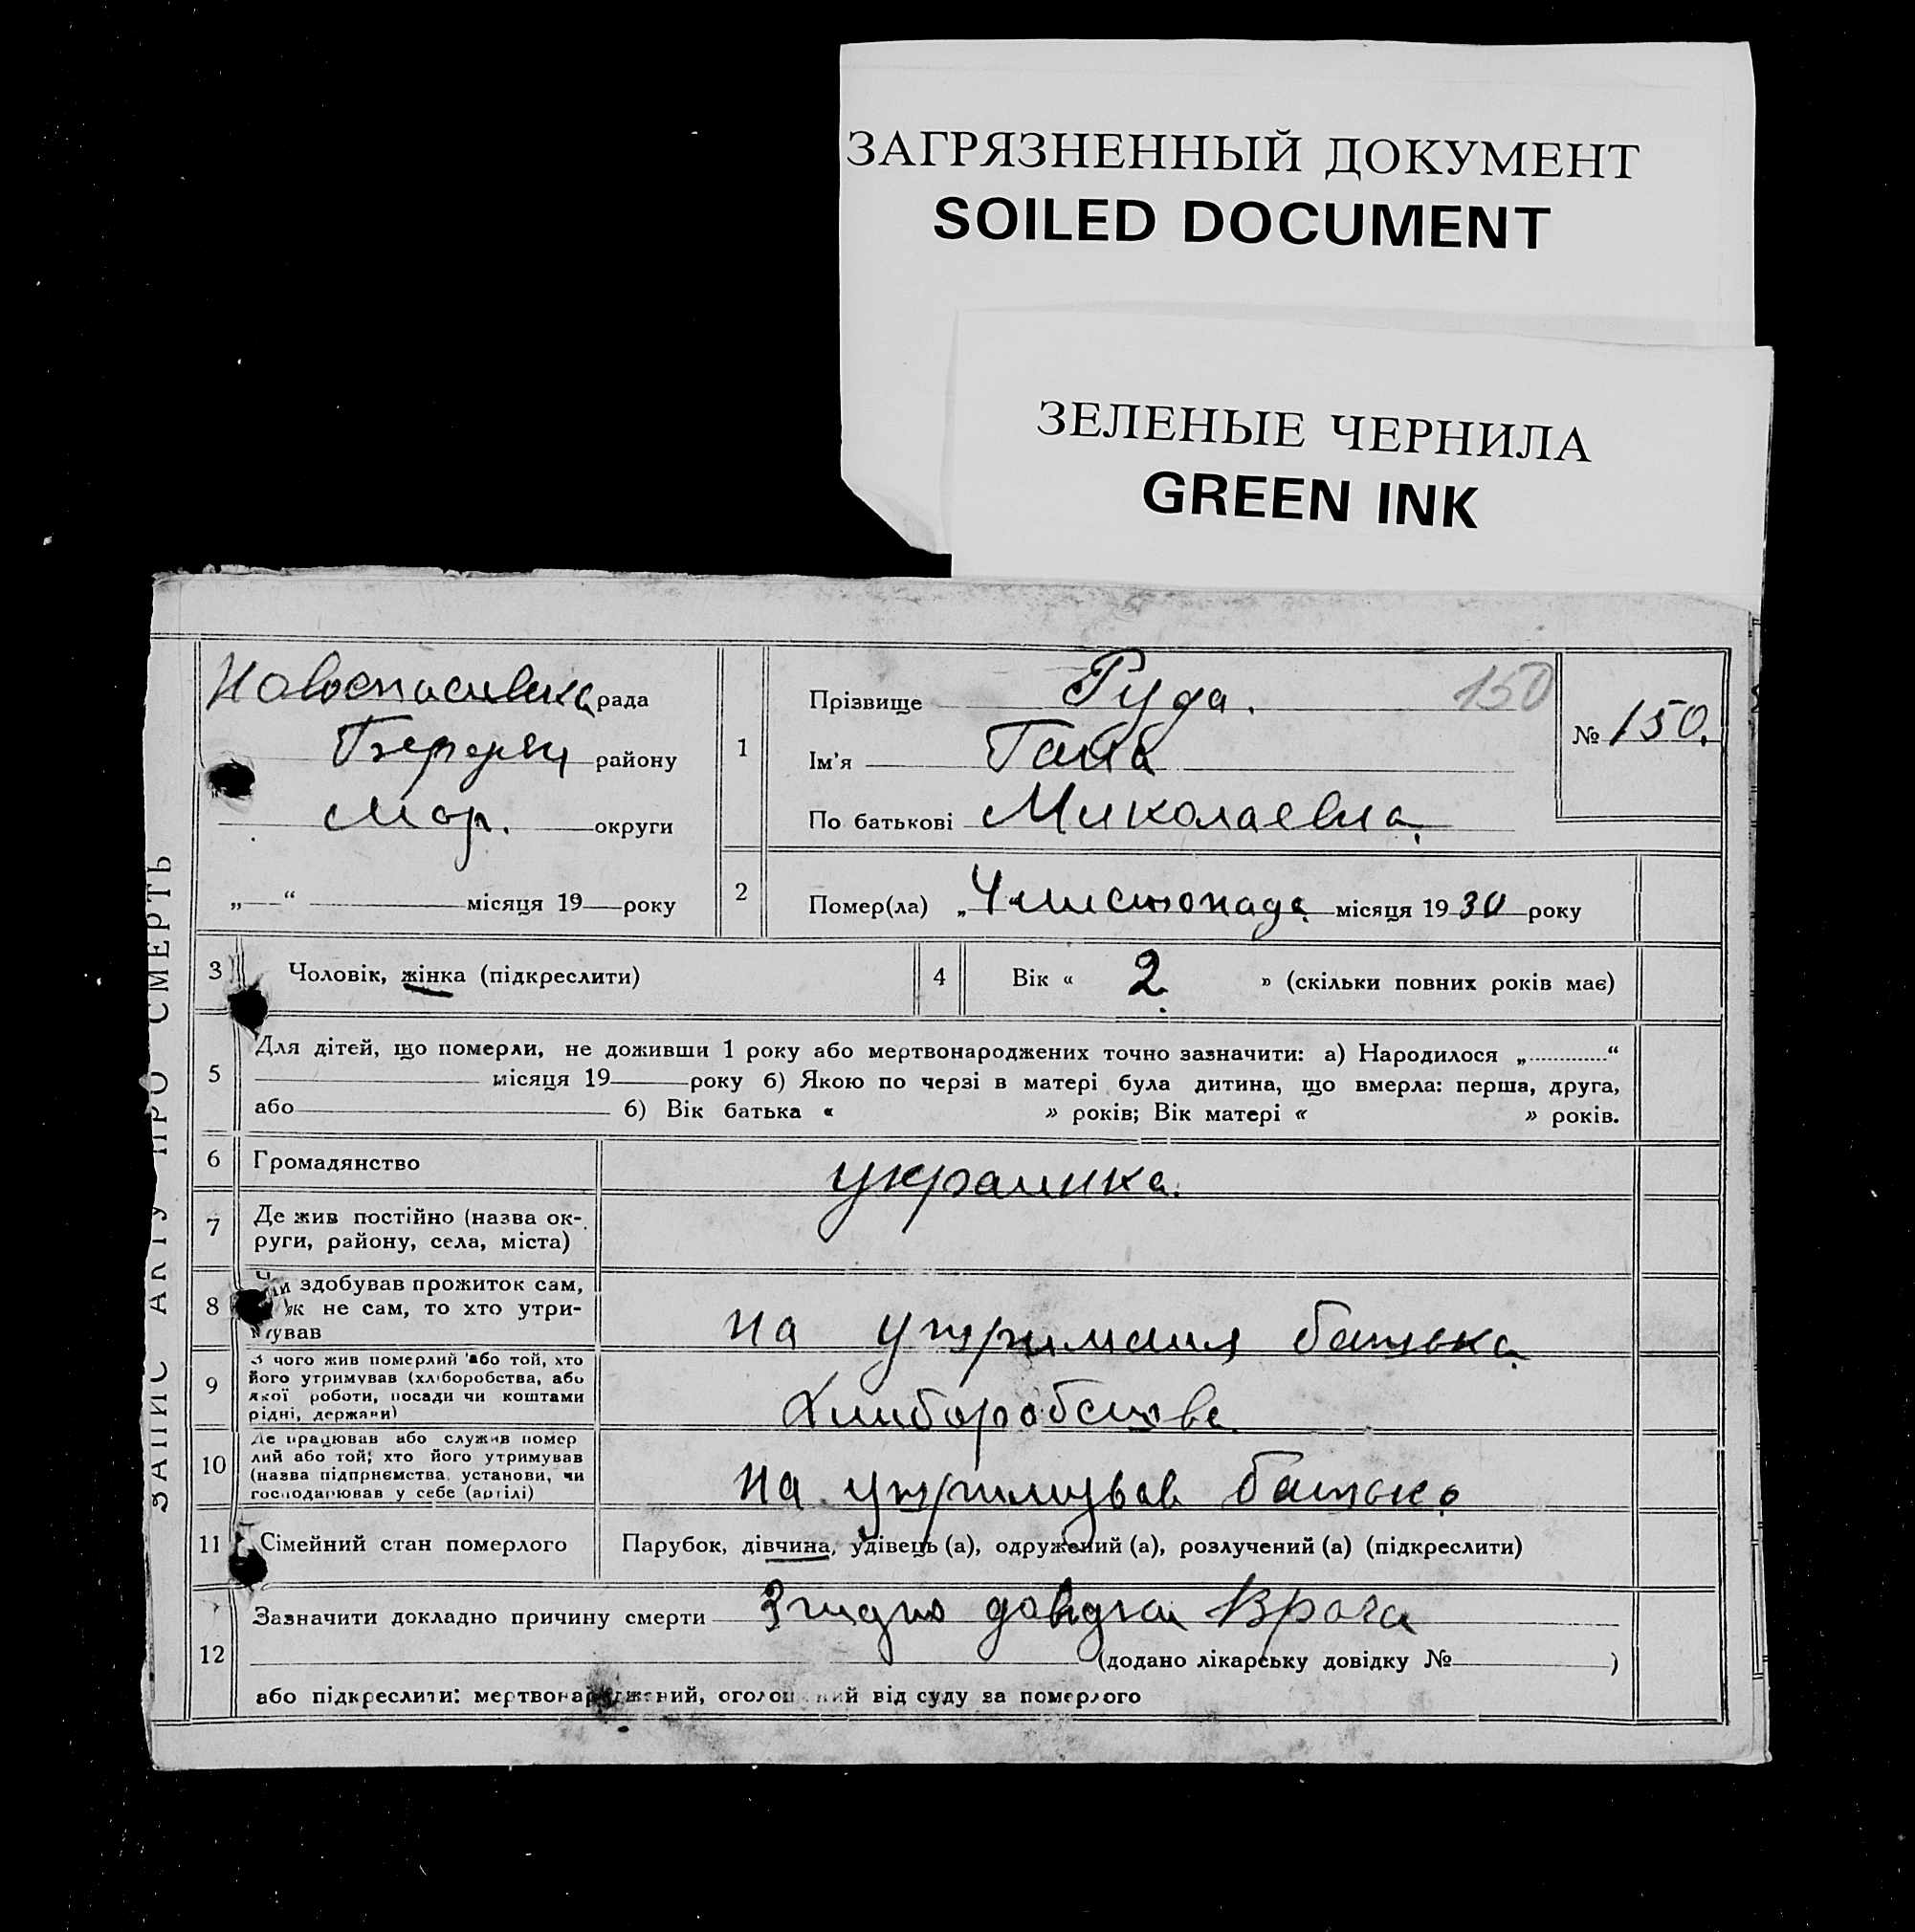 ЗАГРЯЗНЕННЫЙ ДОКУМЕНТ
SOILED DOCUMENT
ЗЕЛЕНЫЕ ЧЕРНИЛА
GREEN INK
ЗАПИС АКТУ ПРО СМЕРТЬ
Новоспасівка рада
району
Мар. округи
„ “ місяця 19 року
1
Прізвище Руда. 150
Ім'я Ганна
По батькові Миколаевна
№ 150.
2 Помер(ла) „4“ листопада місяця 1930 року
3 Чоловік, жінка (підкреслити)
4 Вік « 2 » (скільки повних років має)
5 Для дітей, що померли, не доживши 1 року або мертвонароджених точно зазначити: а) Народилося „ “
місяця 19 року б) Якою по черзі в матері була дитина, що вмерла: перша, друга,
або б) Вік батька « » років; Вік матері « » років.
6 Громадянство украинка.
7 Де жив постійно (назва ок-
руги, району, села, міста)
8 Чи здобував прожиток сам,
як не сам, то хто утри-
мував
на утриманя батька
9 З чого жив померлий або той, хто
його утримував (хліборобства, або
якої роботи, посади чи коштами
рідні, держави)
10 Де працював або служив помер
лий або той; хто його утримував
(назва підприємства, установи, чи
господарював у себе (артілі)
на утримував батько
11 Сімейний стан померлого Парубок, дівчина, удівець (а), одружений (а), розлучений (а) (підкреслити)
12 Зазначити докладно причину смерти Згидно довидки Врача
(додано лікарську довідку № )
або підкреслити: мертвонароджений, оголошений від суду за померлого